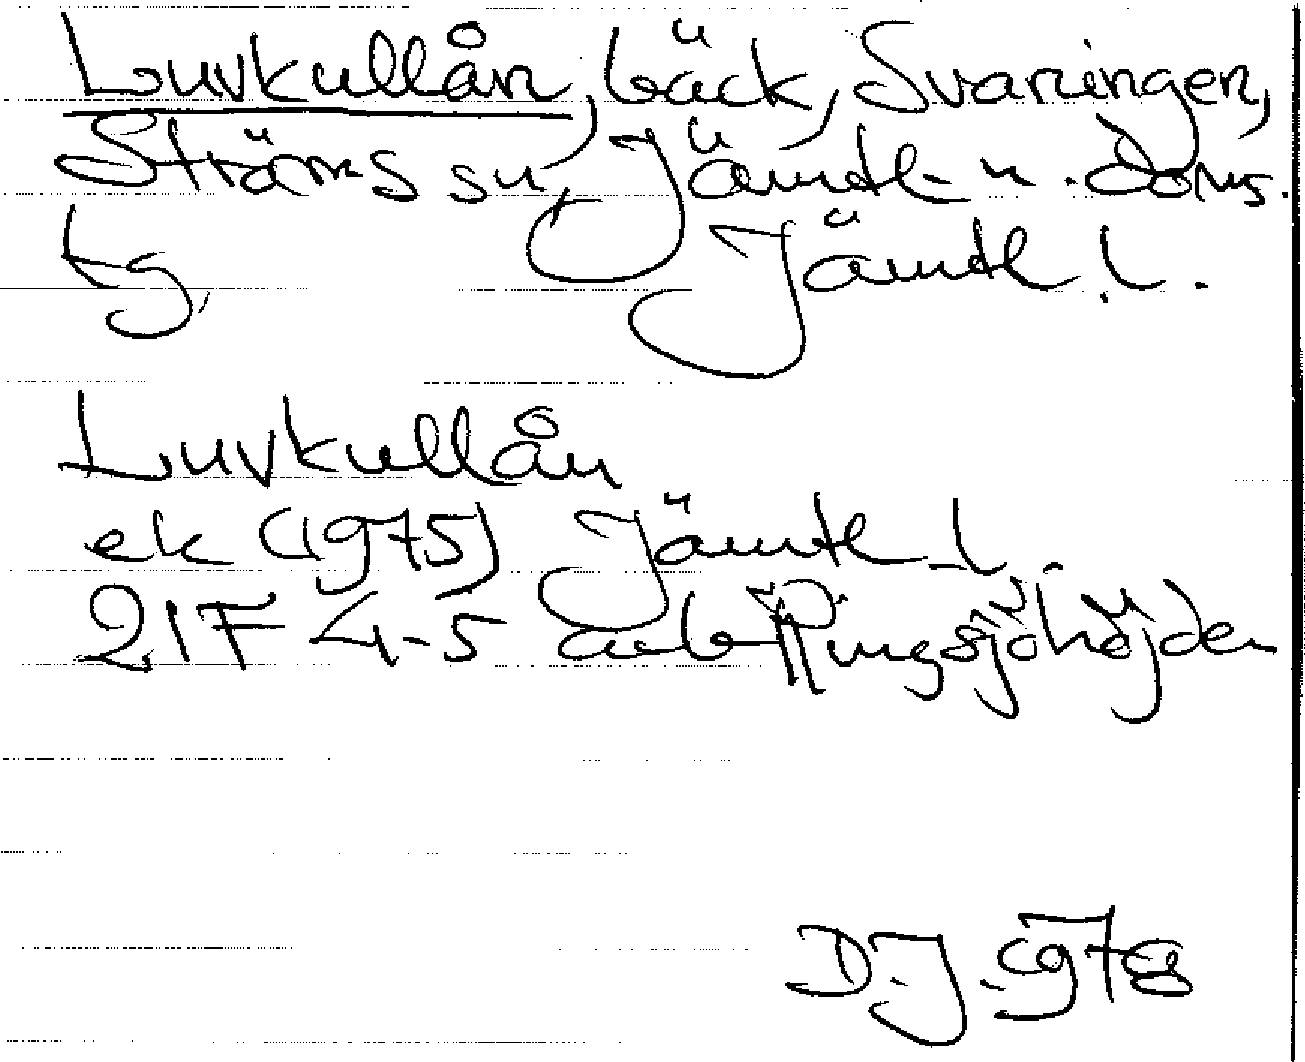 Luvkullån, bäck, Svaningen,
Ströms sn, Jämtl. n. doms.
tg, Jämtl. l.
Luvkullån
ek (1975) Jämtl. l.
21F 4-5 a-b Ringsjöhöjden
D.J. 1978